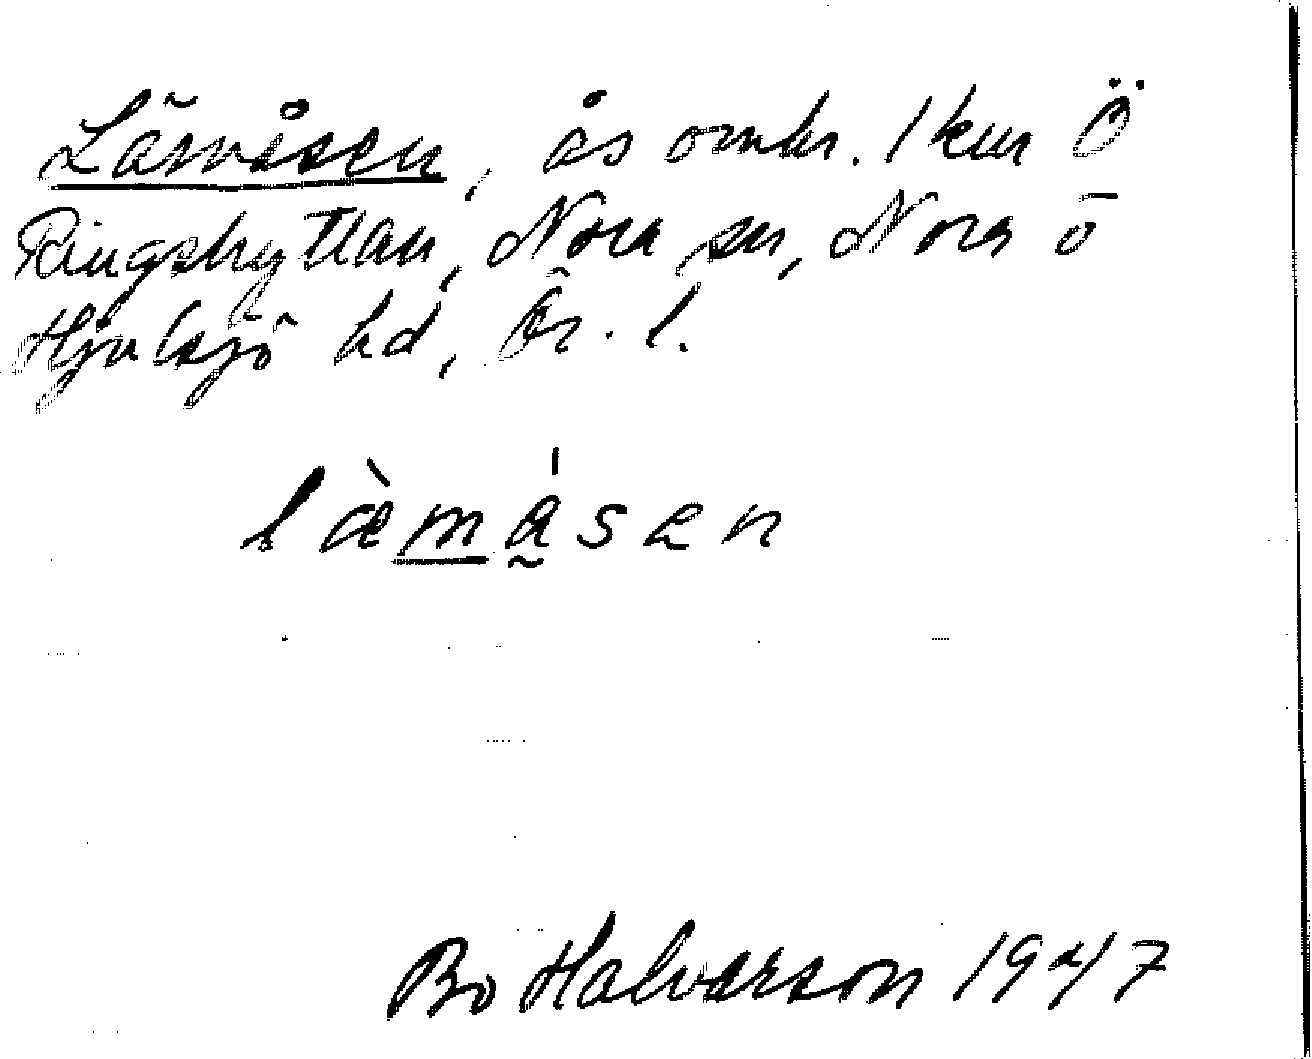 Lämåsen, ås omkr. 1 km Ö
Ringshyttan, Nora sn, Nora o
Hjulsjö hd, Ör. l.
læ̀måsen
Bo Halvarson 1947